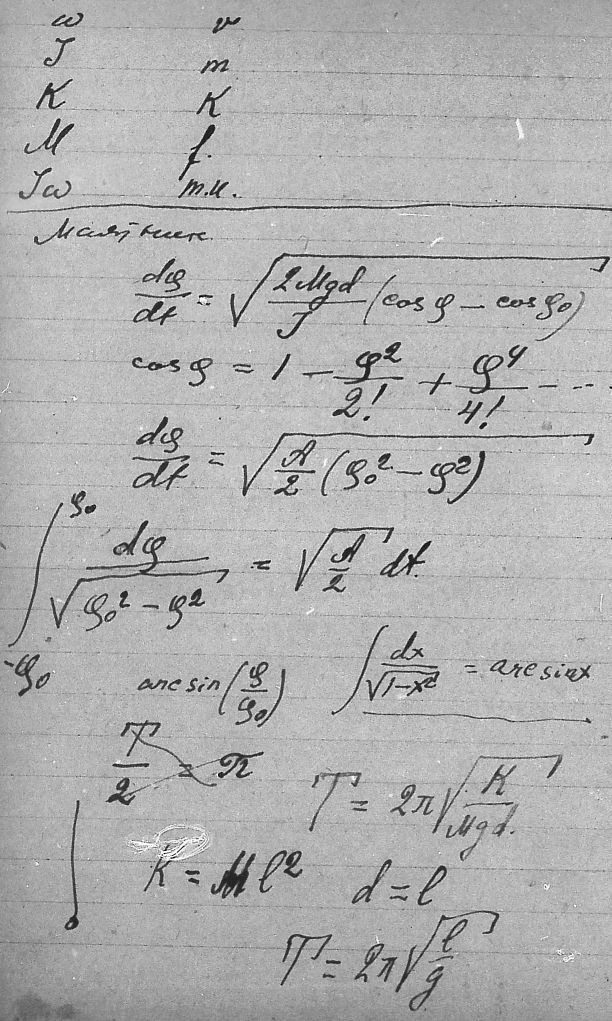 ω v
J m
K K
M f.
Jω m.v.
Маятник
dφ/dt = √(2Mgd/J (cos φ − cos φ₀))
cos φ = 1 − φ²/2! + φ⁴/4! − ...
dφ/dt = √(A/2 (φ₀² − φ²))
∫_{-φ₀}^{φ₀} dφ/√(φ₀² − φ²) = √(A/2) dt.
arcsin(φ/φ₀) ∫ dx/√(1−x²) = arcsin x
T/2 = π
T = 2π√(K/Mgd.)
K = Ml² d = l
T = 2π√(l/g)